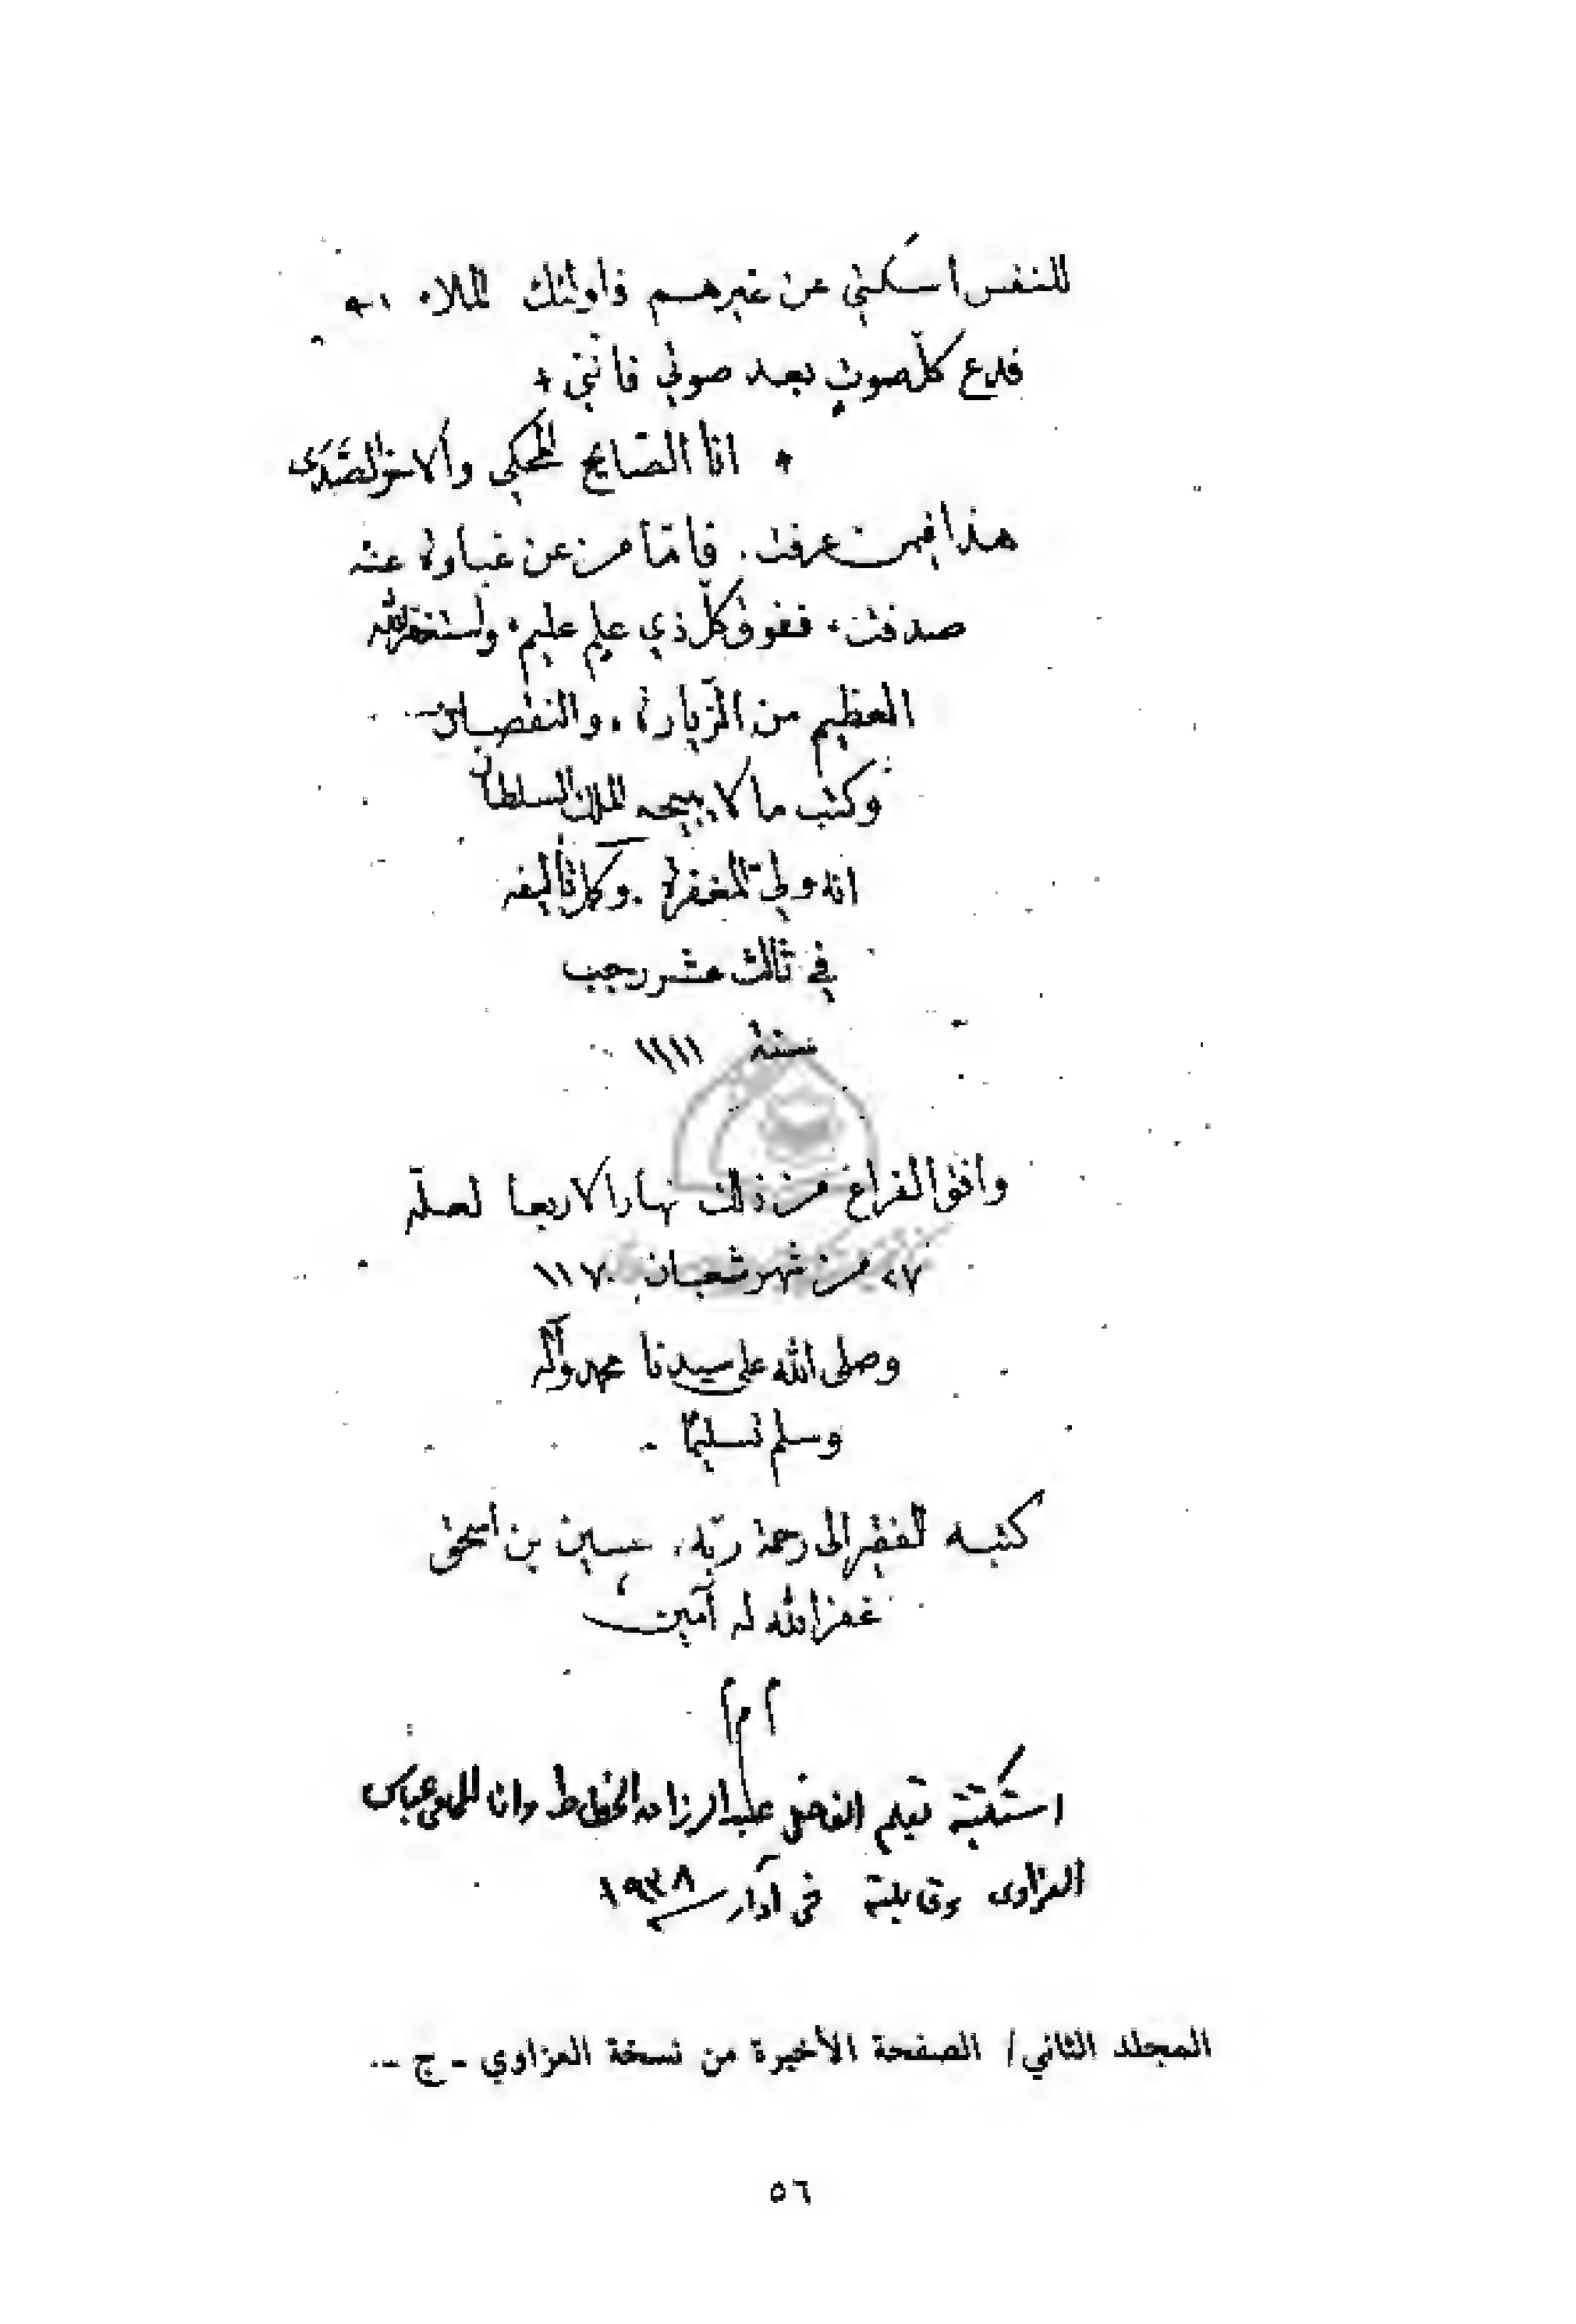 للنفس اسكتي عن غيرهم فاولئك الملاء
فدع كل صوت بعد صوتي فانني *
* انا الصايح المحكي والاخر الصدى
هذا فيمن عرفت. فامّا من عن غباوة عنه
صدفت، ففوق كلّ ذي علم عليم، واستغفر الله
العظيم من الزيارة، والنقصان
وكتب ما لا يبيحه الملك السلطان
انه ولي المغفرة. وكمل تأليفه
في ثالث عشر رجب
سنة ١١١١
وافق الفراغ من ذلك نهار الاربعا لعلّه
٢٧ من شهر شعبان ١١٧٠
وصلى الله على سيدنا محمد وآله
وسلم تسليمًا
كتبه الفقير الى رحمة ربّه، حسين بن اسحق
غفر الله له آمين
م م م
استكتبته بقلم الفاضل عبد الرزاق الخطاط وانا المحامي عباس
العزاوى وقابلته في آذار ١٩٣٨
المجلد الثاني/ الصفحة الأخيرة من نسخة العزاوي - ج -.
٥٦